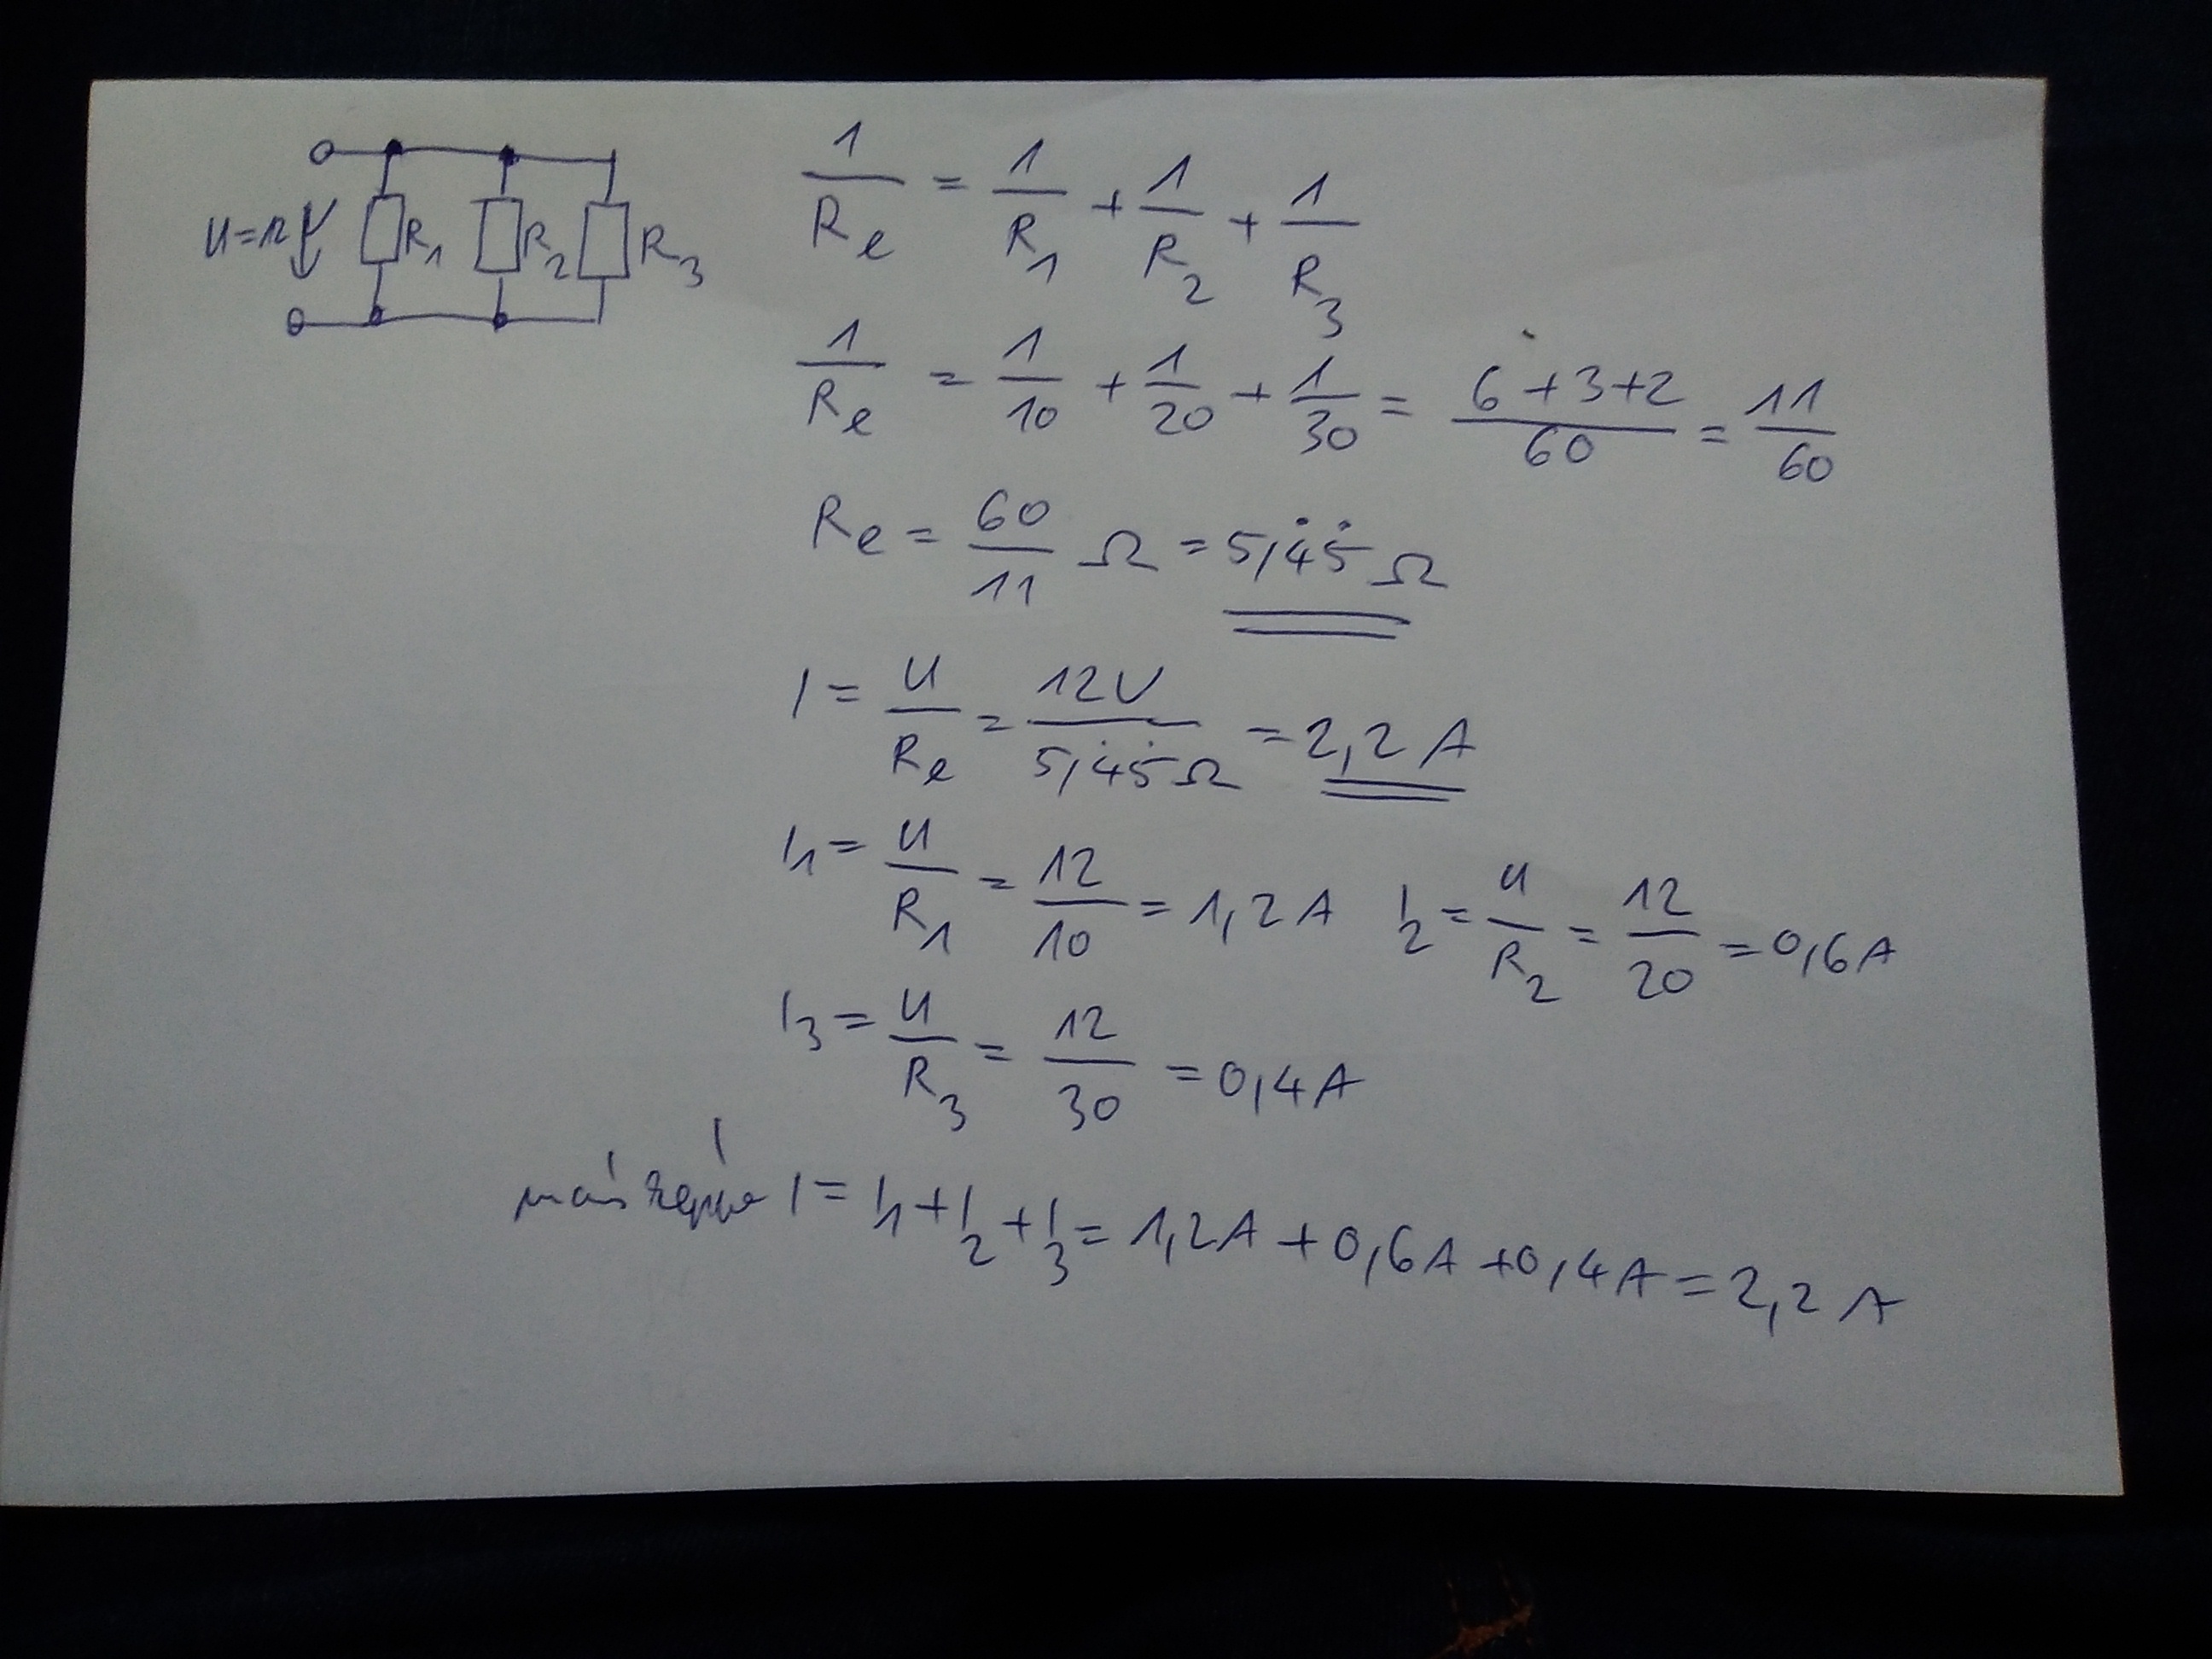 U=12V R₁ R₂ R₃
1/Rₑ = 1/R₁ + 1/R₂ + 1/R₃
1/Rₑ = 1/10 + 1/20 + 1/30 = (6+3+2)/60 = 11/60
Rₑ = 60/11 Ω = 5,4̇5̇ Ω
I = U/Rₑ = 12V/5,4̇5̇Ω = 2,2 A
I₁ = U/R₁ = 12/10 = 1,2 A I₂ = U/R₂ = 12/20 = 0,6 A
I₃ = U/R₃ = 12/30 = 0,4 A
másképp I = I₁ + I₂ + I₃ = 1,2A + 0,6A + 0,4A = 2,2 A